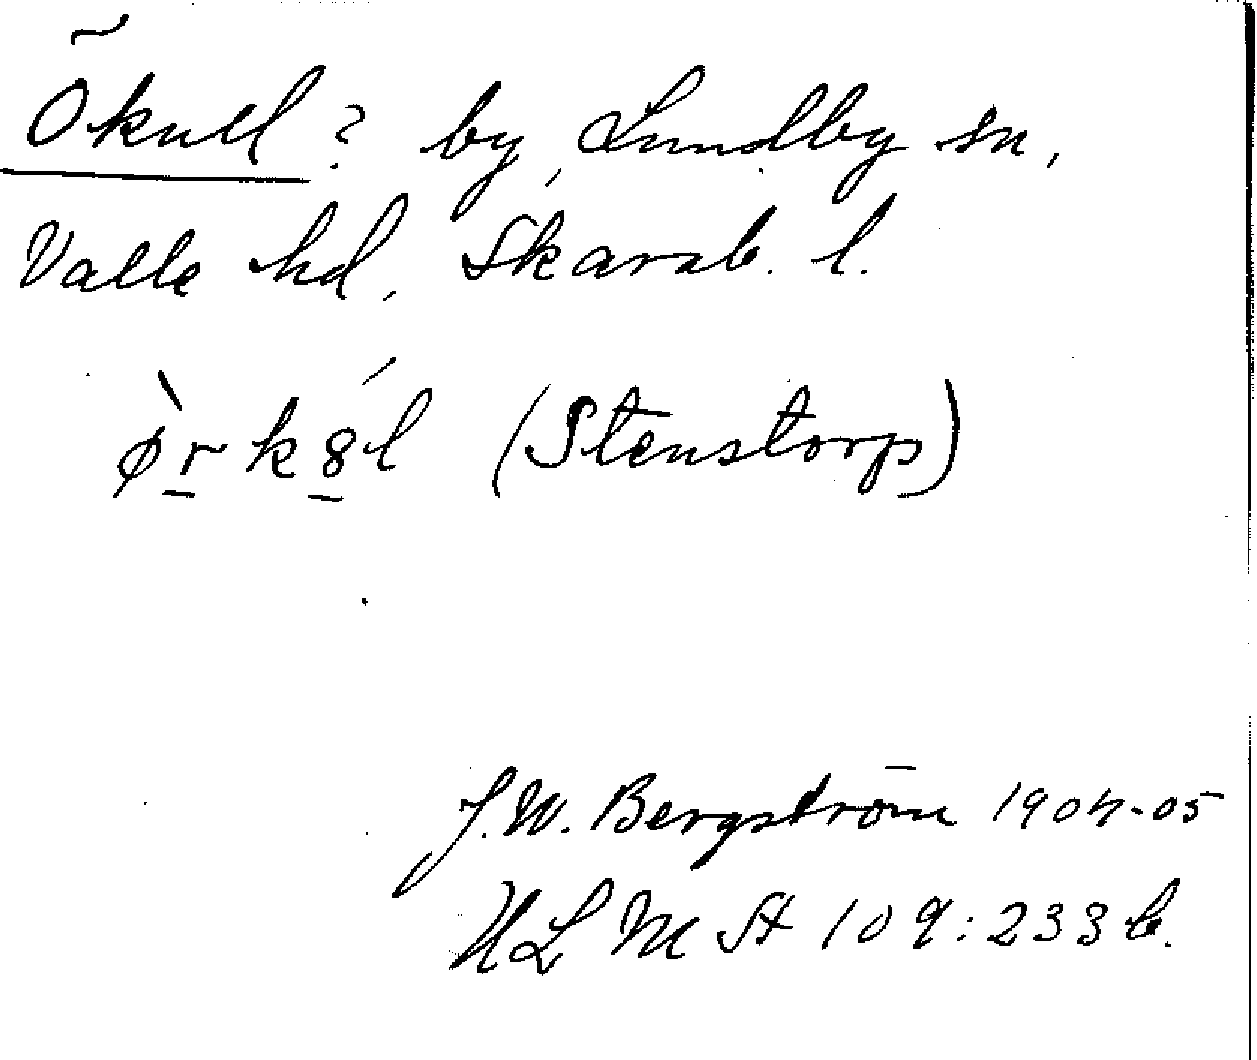 Ökull? by, Lundby sn,
Valle hd, Skarab. l.
ø̀r̠k8̠ĺ (Stenstorp)
J.W. Bergström 1904-05
ULMA 109:233 b.